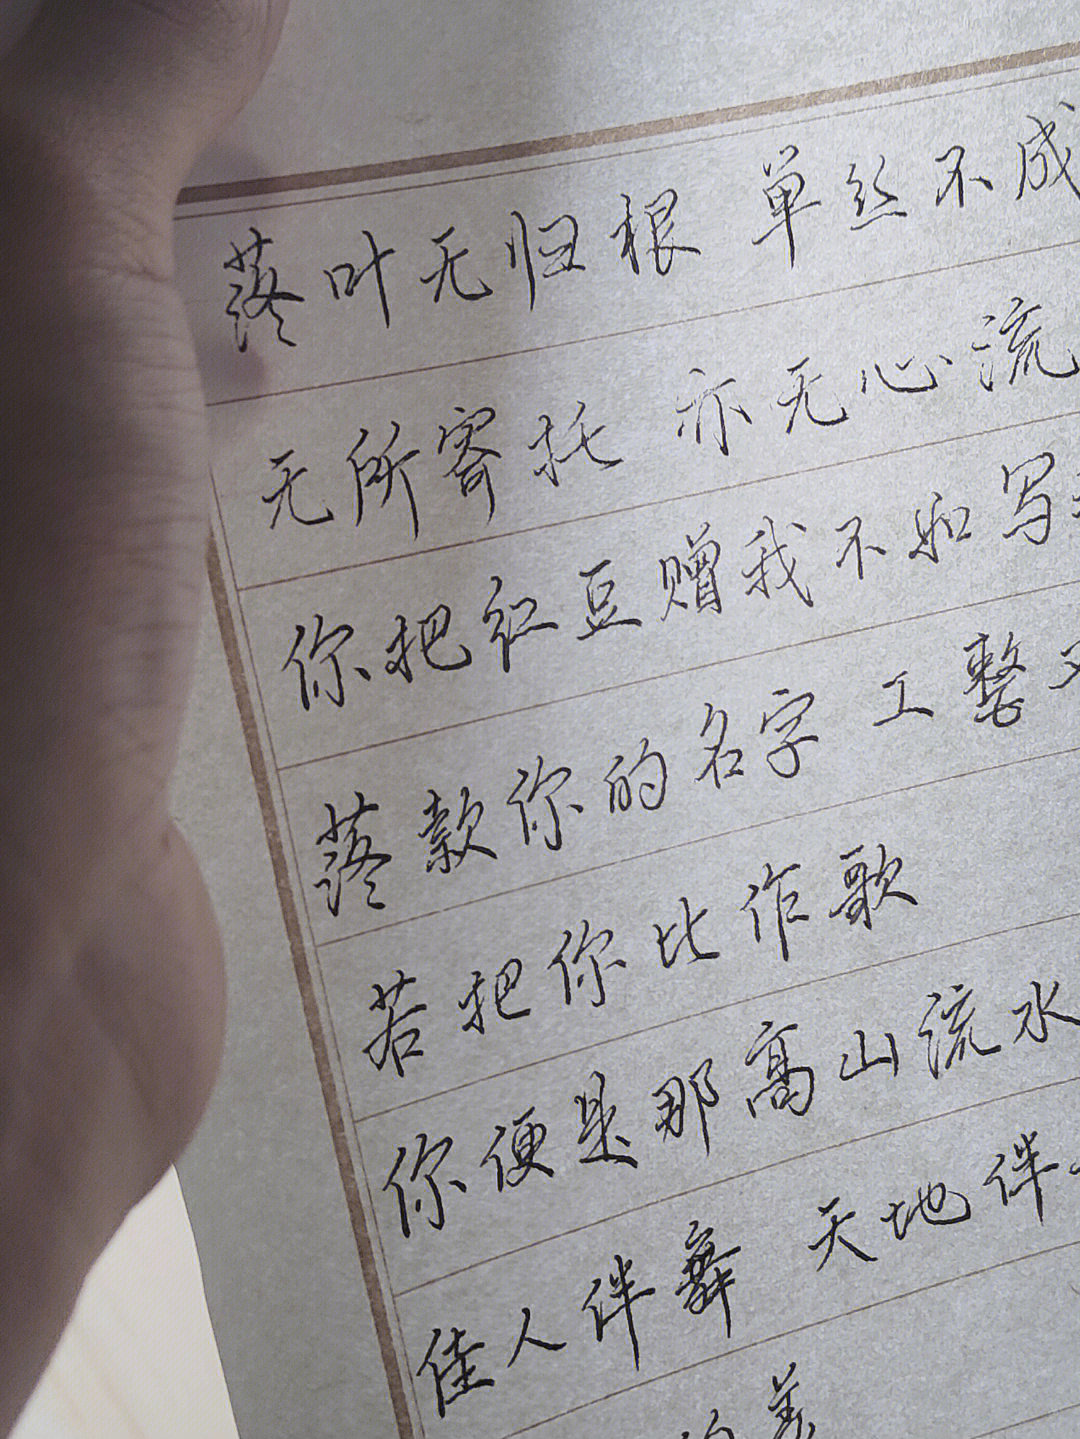 落叶无归根 单丝不成
无所寄托 亦无心流
你把红豆赠我不如写
落款你的名字 工整
若把你比作歌
你便是那高山流水
佳人伴舞 天地伴
的美